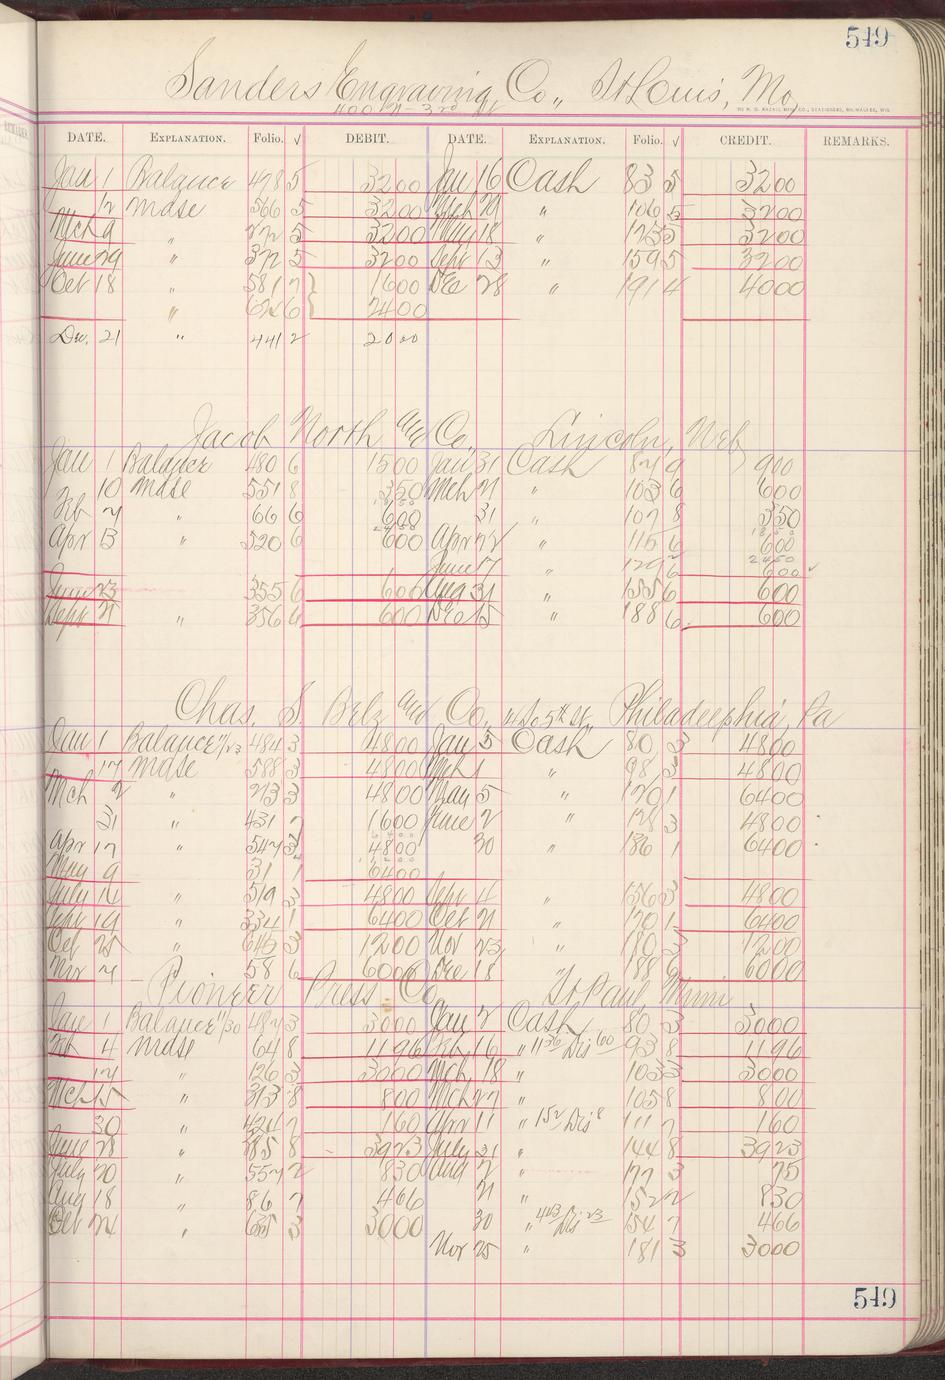 549
Sanders Engraving Co., St Louis, Mo,
400 N-3rd
DATE. EXPLANATION. Folio. √ DEBIT. DATE. EXPLANATION. Folio. √ CREDIT. REMARKS.
Jan 1 Balance 478 5 3200 Jan 16 Cash 83 5 3200
12 Mdse 566 5 3200 Mch 29 " 106 5 3200
Mch 9 " 5 3200 May 18 " 5 3200
June 29 " 5 3200 Sept 13 " 159 5 3200
Oct 18 581 7 1600 Dec 28 " 191 4 4000
" 6 2400
Dec. 21 " 441 2 2000
Jacob North and Co. Lincoln, Neb
Jan 1 Balance 480 6 1500 Jan 31 Cash 9 900
10 Mdse 551 8 350 Mch 21 " 103 6 600
Feb 7 " 66 6 600 31 " 107 8 350
Apr 13 " 520 6 600 Apr 22 " 115 6 600
June 17 6 600
June 23 355 6 600 Aug 31 " 155 6 600
Sept 21 " 356 6 600 Dec 15 " 188 6 600
Chas. S. Belz and Co. So 5th St. Philadelphia, Pa
Jan 1 Balance 484 3 4800 Jan 5 Cash 80 3 4800
17 Mdse 588 3 4800 Mch 1 " 98 3 4800
Mch 2 " 3 4800 May 5 " 120 1 6400
31 " 431 7 1600 June 2 " 128 3 4800
Apr 17 " 547 3 4800 30 " 136 1 6400
May 9 31 1 6400
July 14 " 519 3 4800 Sept 4 " 156 3 4800
Sept 19 " 334 1 6400 Oct 21 " 170 1 6400
Oct 25 " 3 1200 Nov 23 " 180 3 1200
Nov 7 58 6 6000 Dec 18 188 6 6000
Pioneer Press Co St Paul, Minn
Jan 1 Balance 11/30 487 3 3000 Jan 2 Cash 80 3 3000
Feb 4 Mdse 64 8 1196 Feb 16 " 1136 Dis 60 93 8 1196
14 " 126 3 3000 Mch 18 " 103 3 3000
Mch 15 " 313 8 800 Mch 27 " 105 8 800
30 " 424 7 160 Apr 11 " 152 Dis 8 111 7 160
June 28 " 8 3923 July 31 " 144 8 3923
July 20 " 557 2 830 Aug 2 " 3 75
Aug 18 " 86 7 466 21 " 152 2 830
Oct 24 " 3 3000 30 " 443 Dis 23 154 7 466
Nov 25 " 181 3 3000
549